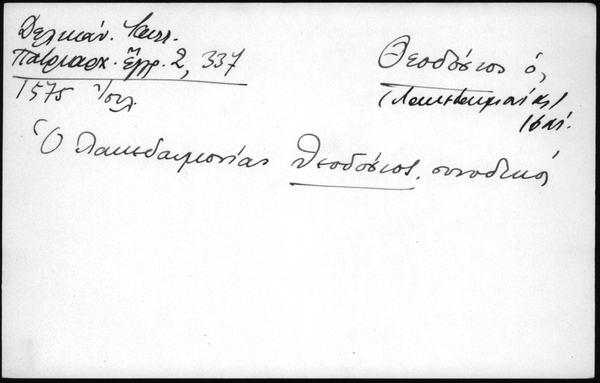 Δελικάν. Καλλ.
Πατριαρχ. Ἔγγρ. 2, 337
1575 Ἰουλ.
Θεοδόσιος ὁ,
(Λακεδαιμονίας)
16 αἰ.
Ὁ Λακεδαιμονίας Θεοδόσιος, συνοδικός